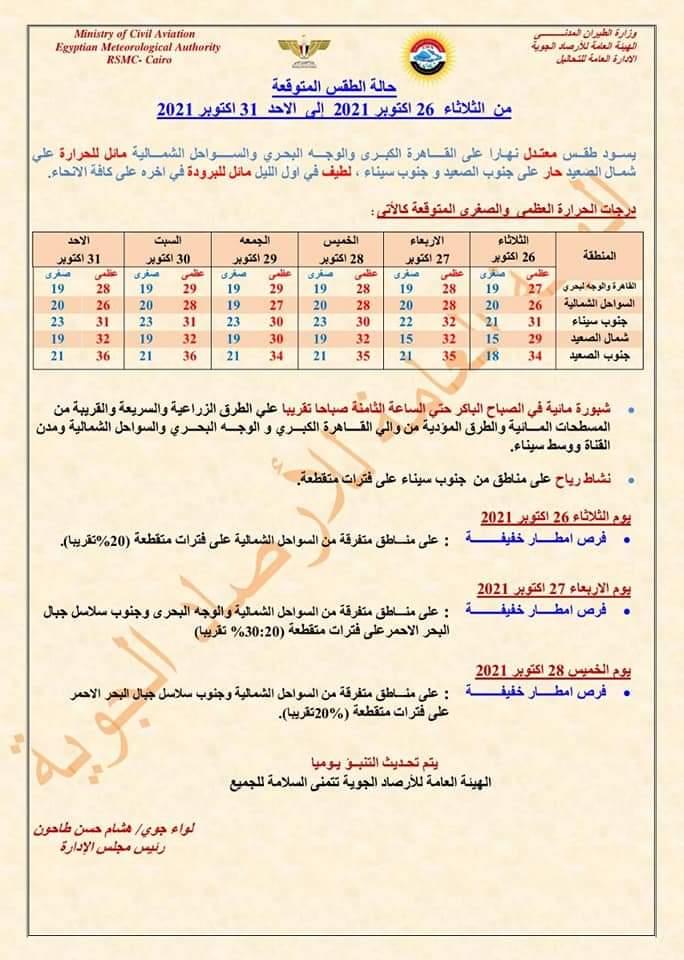 Ministry of Civil Aviation
Egyptian Meteorological Authority
RSMC- Cairo
وزارة الطيران المدنـــي
الهيئة العامة للأرصاد الجوية
الادارة العامة للتحاليل
حالة الطقس المتوقعة
من الثلاثاء 26 اكتوبر 2021 إلى الاحد 31 اكتوبر 2021
يسود طقس معتدل نهارا على القاهرة الكبرى والوجه البحري والسواحل الشمالية مائل للحرارة علي
شمال الصعيد حار على جنوب الصعيد و جنوب سيناء ، لطيف في اول الليل مائل للبرودة في اخره على كافة الانحاء.
درجات الحرارة العظمي والصغرى المتوقعة كالأتي :
المنطقة الثلاثاء الاربعاء الخميس الجمعه السبت الاحد
26 اكتوبر 27 اكتوبر 28 اكتوبر 29 اكتوبر 30 اكتوبر 31 اكتوبر
عظمي صغرى عظمي صغرى عظمي صغرى عظمي صغرى عظمي صغرى عظمي صغرى
القاهرة والوجه لبحري 27 19 28 19 28 19 29 19 29 19 28 19
السواحل الشمالية 26 20 28 20 28 20 27 19 28 20 26 20
جنوب سيناء 31 21 32 22 30 23 30 23 31 23 31 23
شمال الصعيد 29 15 32 15 32 19 30 19 32 19 32 19
جنوب الصعيد 34 18 35 21 35 21 34 21 36 21 36 21
شبورة مائية في الصباح الباكر حتي الساعة الثامنة صباحا تقريبا علي الطرق الزراعية والسريعة والقريبة من
المسطحات المائية والطرق المؤدية من والي القاهرة الكبري و الوجه البحري والسواحل الشمالية ومدن
القناة ووسط سيناء.
نشاط رياح على مناطق من جنوب سيناء على فترات متقطعة.
يوم الثلاثاء 26 اكتوبر 2021
فرص امطار خفيفة : على مناطق متفرقة من السواحل الشمالية على فترات متقطعة (20%تقريبا).
يوم الاربعاء 27 اكتوبر 2021
فرص امطار خفيفة : على مناطق متفرقة من السواحل الشمالية والوجه البحرى وجنوب سلاسل جبال
البحر الاحمرعلى فترات متقطعة (30:20% تقريبا)
يوم الخميس 28 اكتوبر 2021
فرص امطار خفيفة : على مناطق متفرقة من السواحل الشمالية وجنوب سلاسل جبال البحر الاحمر
على فترات متقطعة (20%تقريبا).
يتم تحديث التنبؤ يوميا
الهيئة العامة للأرصاد الجوية تتمنى السلامة للجميع
لواء جوي/ هشام حسن طاحون
رئيس مجلس الإدارة
الهيئة العامة للأرصاد الجوية